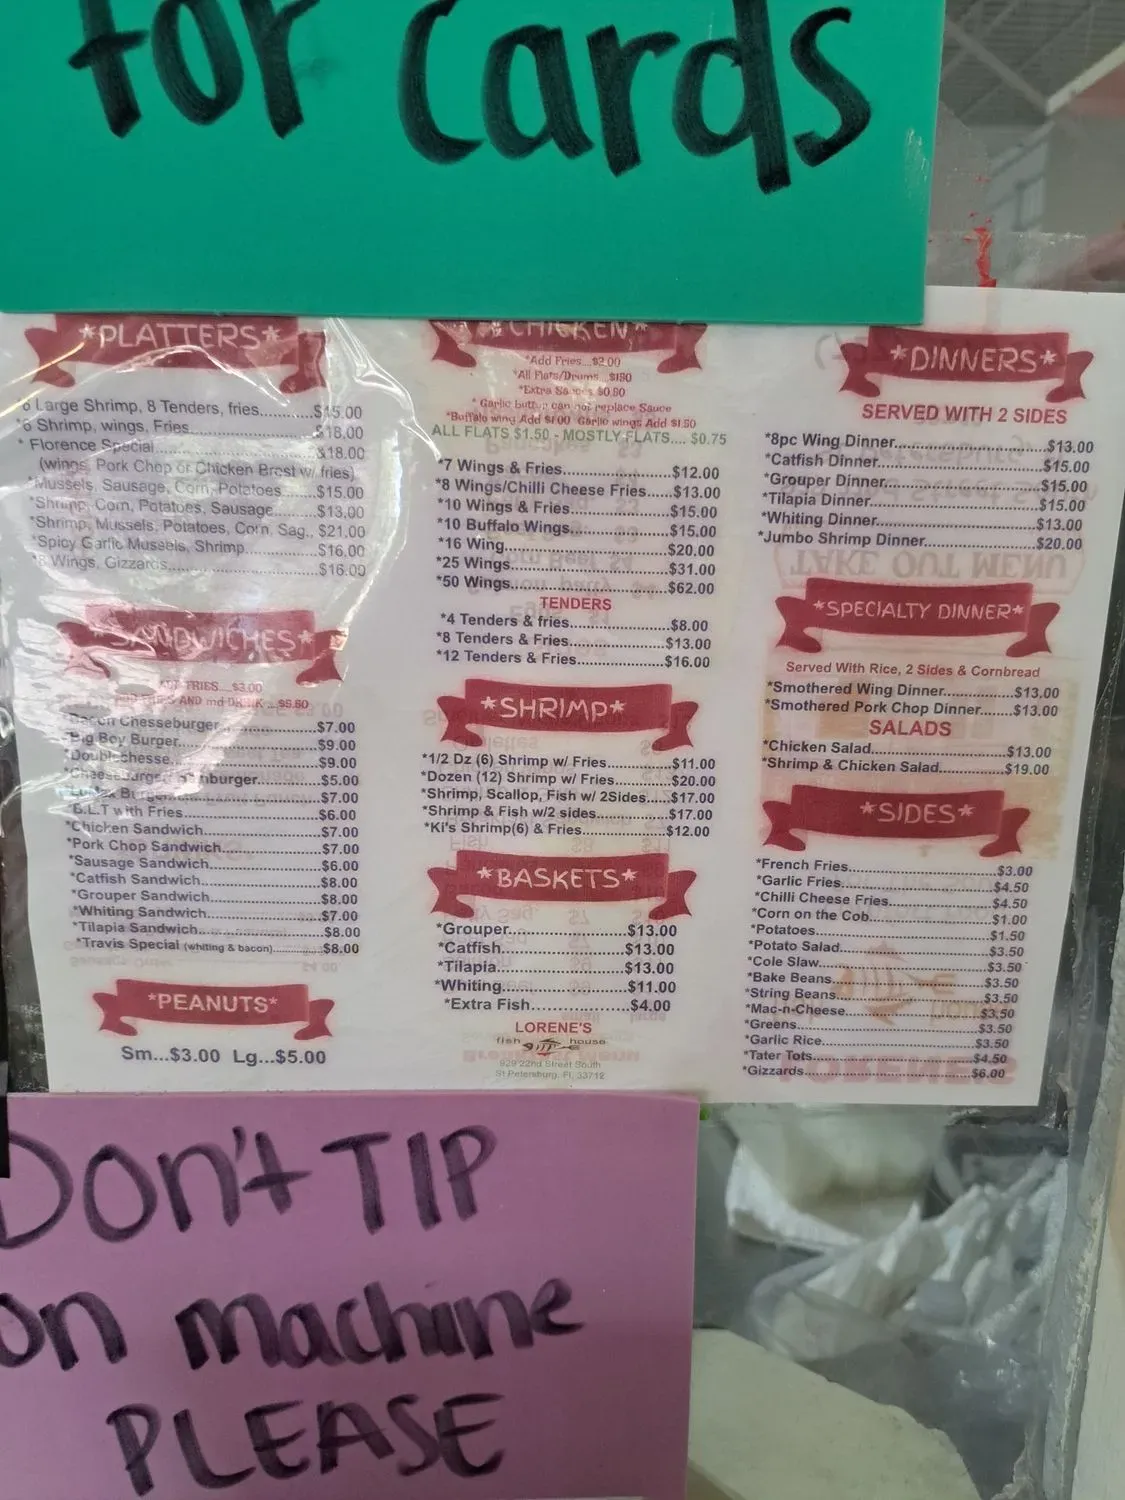 for Cards
*PLATTERS*
*6 Large Shrimp, 8 Tenders, fries............$15.00
*6 Shrimp, wings, Fries..............................$18.00
* Florence Special.......................................$18.00
(wings, Pork Chop or Chicken Brest w/ fries)
*Mussels, Sausage, Corn, Potatoes.......$15.00
*Shrimp, Corn, Potatoes, Sausage.........$13.00
*Shrimp, Mussels, Potatoes, Corn, Sag.. $21.00
*Spicy Garlic Mussels, Shrimp................$16.00
*8 Wings, Gizzards....................................$16.00
*SANDWICHES*
FRIES....$3.00
AND md DRINK ...$5.50
*Bacon Chesseburger......................$7.00
*Big Boy Burger................................$9.00
*Doublechesse..................................$9.00
*Cheeseburger/Hamburger.............$5.00
Burger..............................$7.00
*B.L.T with Fries................................$6.00
*Chicken Sandwich..........................$7.00
*Pork Chop Sandwich......................$7.00
*Sausage Sandwich.........................$6.00
*Catfish Sandwich............................$8.00
*Grouper Sandwich..........................$8.00
*Whiting Sandwich...........................$7.00
*Tilapia Sandwich.............................$8.00
*Travis Special (whiting & bacon)............$8.00
*PEANUTS*
Sm...$3.00 Lg...$5.00
*CHICKEN*
*Add Fries....$2.00
*All Flats/Drums....$1.50
*Extra Sauces $0.50
* Garlic butter can not replace Sauce
*Buffalo wing Add $1.00 Garlic wings Add $1.50
ALL FLATS $1.50 - MOSTLY FLATS.... $0.75
*7 Wings & Fries..........................$12.00
*8 Wings/Chilli Cheese Fries......$13.00
*10 Wings & Fries........................$15.00
*10 Buffalo Wings.......................$15.00
*16 Wing.......................................$20.00
*25 Wings.....................................$31.00
*50 Wings.....................................$62.00
TENDERS
*4 Tenders & fries.......................$8.00
*8 Tenders & Fries.......................$13.00
*12 Tenders & Fries.....................$16.00
*SHRIMP*
*1/2 Dz (6) Shrimp w/ Fries..............$11.00
*Dozen (12) Shrimp w/ Fries............$20.00
*Shrimp, Scallop, Fish w/ 2Sides.....$17.00
*Shrimp & Fish w/2 sides.................$17.00
*Ki's Shrimp(6) & Fries....................$12.00
*BASKETS*
*Grouper...........................$13.00
*Catfish.............................$13.00
*Tilapia..............................$13.00
*Whiting............................$11.00
*Extra Fish.......................$4.00
LORENE'S
fish house
929 22nd Street South
St Petersburg, Fl. 33712
*DINNERS*
SERVED WITH 2 SIDES
*8pc Wing Dinner...............................$13.00
*Catfish Dinner..................................$15.00
*Grouper Dinner................................$15.00
*Tilapia Dinner...................................$15.00
*Whiting Dinner.................................$13.00
*Jumbo Shrimp Dinner......................$20.00
TAKE OUT MENU
*SPECIALTY DINNER*
Served With Rice, 2 Sides & Cornbread
*Smothered Wing Dinner................$13.00
*Smothered Pork Chop Dinner........$13.00
SALADS
*Chicken Salad...............................$13.00
*Shrimp & Chicken Salad................$19.00
*SIDES*
*French Fries...................................$3.00
*Garlic Fries.....................................$4.50
*Chilli Cheese Fries.........................$4.50
*Corn on the Cob............................$1.00
*Potatoes.........................................$1.50
*Potato Salad...................................$3.50
*Cole Slaw.......................................$3.50
*Bake Beans....................................$3.50
*String Beans...................................$3.50
*Mac-n-Cheese................................$3.50
*Greens............................................$3.50
*Garlic Rice......................................$3.50
*Tater Tots........................................$4.50
*Gizzards..........................................$6.00
Don't TIP
on machine
PLEASE